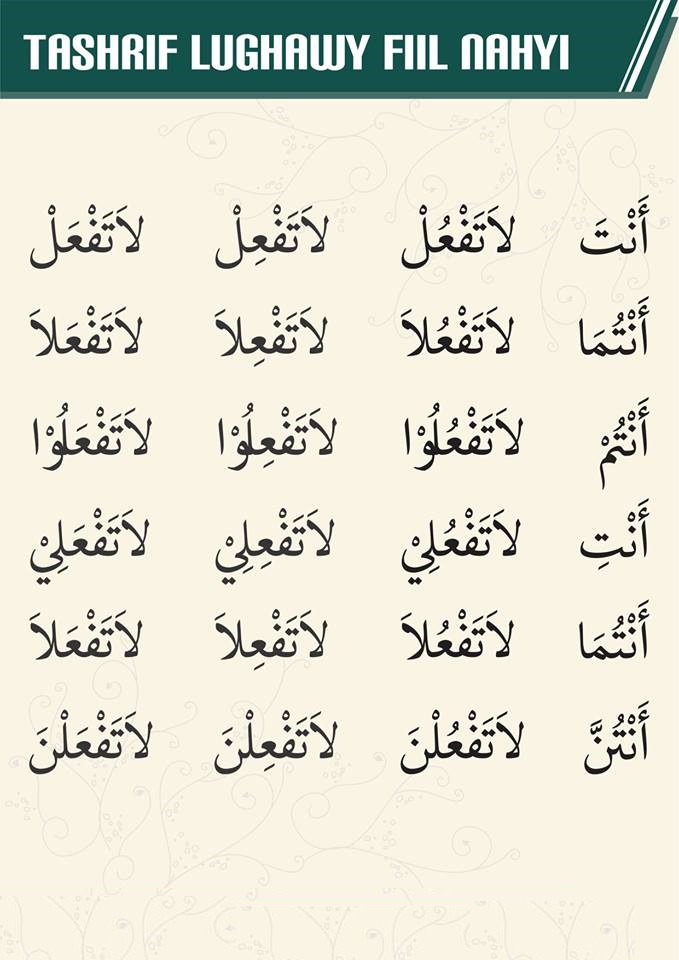 TASHRIF LUGHAWY FIIL NAHYI
أَنْتَ لاَتَفْعُلْ لاَتَفْعِلْ لاَتَفْعَلْ
أَنْتُمَا لاَتَفْعُلاَ لاَتَفْعِلاَ لاَتَفْعَلاَ
أَنْتُمْ لاَتَفْعُلُوْا لاَتَفْعِلُوْا لاَتَفْعَلُوْا
أَنْتِ لاَتَفْعُلِيْ لاَتَفْعِلِيْ لاَتَفْعَلِيْ
أَنْتُمَا لاَتَفْعُلاَ لاَتَفْعِلاَ لاَتَفْعَلاَ
أَنْتُنَّ لاَتَفْعُلْنَ لاَتَفْعِلْنَ لاَتَفْعَلْنَ